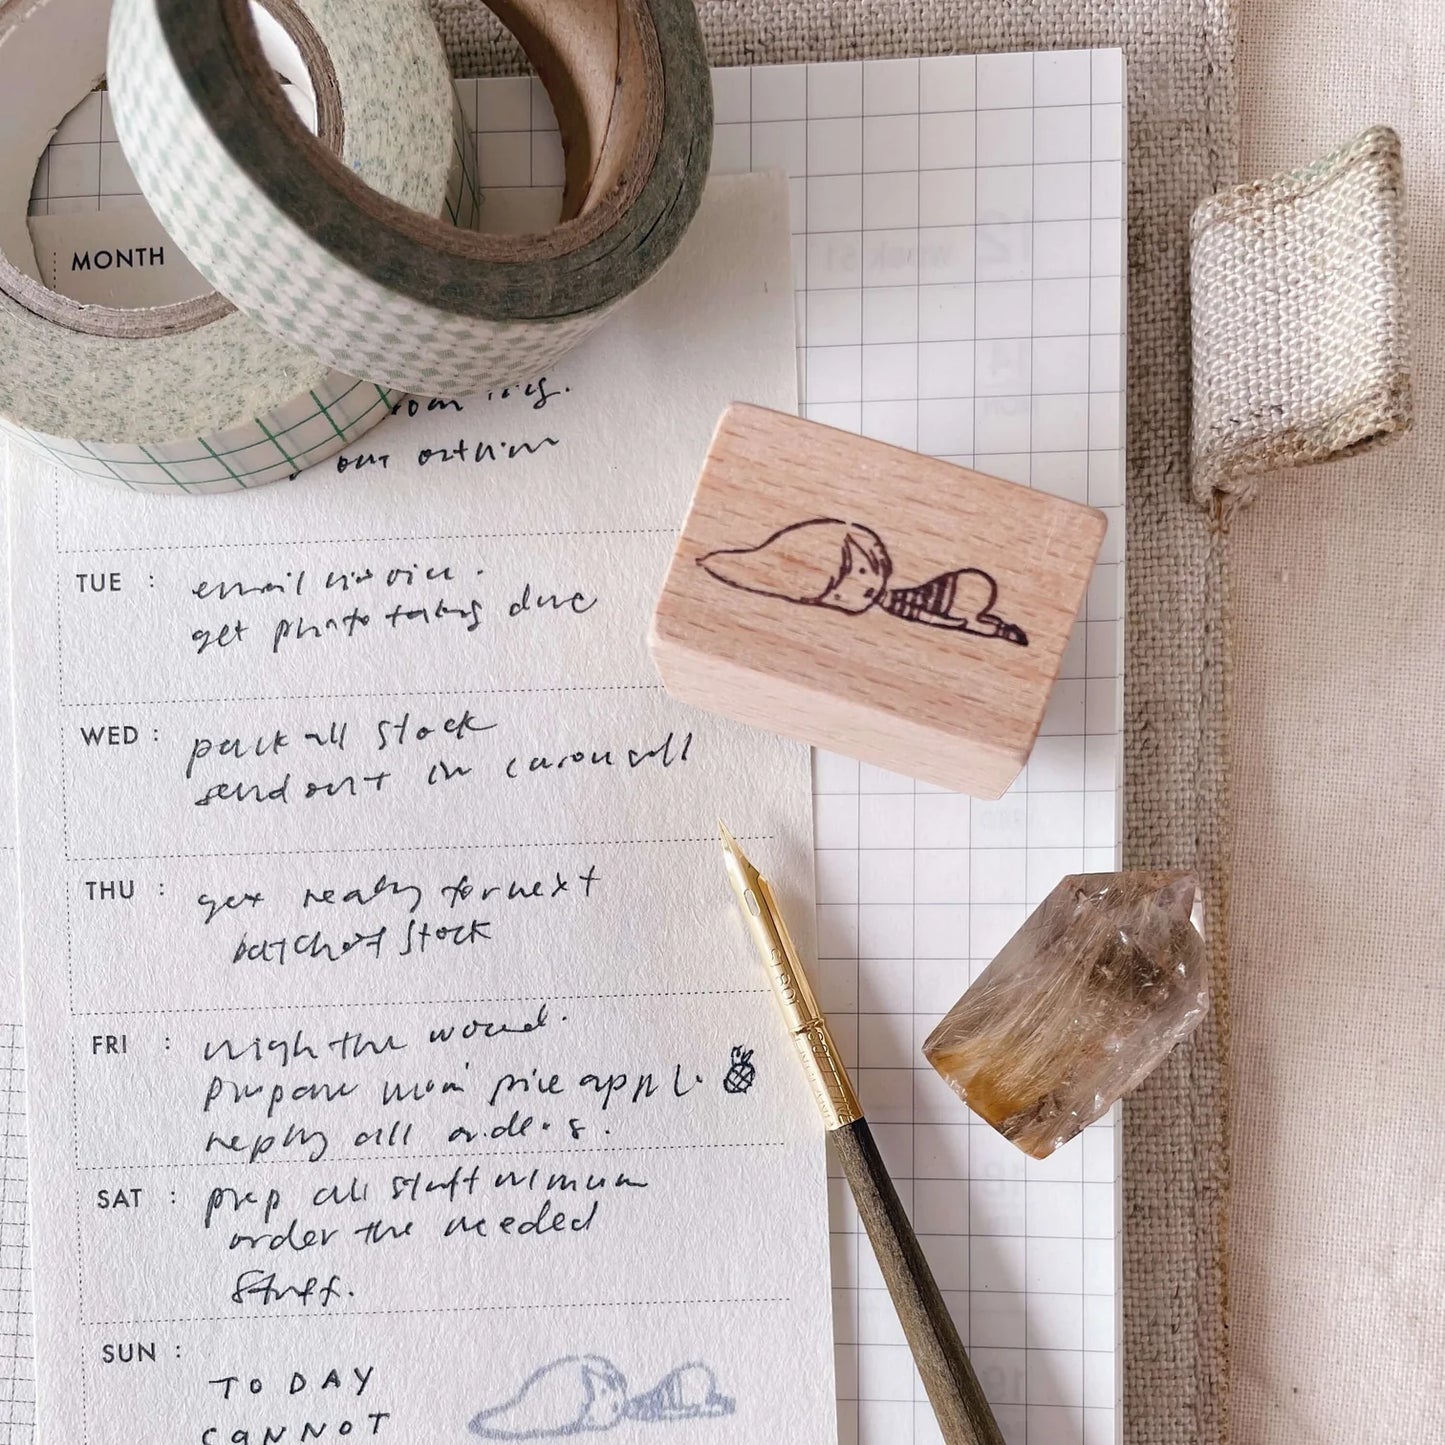 MONTH
out
TUE :
email invoice.
get photo taking done
WED :
pack all stock
send out in carousell
THU :
get ready for next
batch of stock
FRI :
the wound.
prepare mom pineapple.
reply all orders.
SAT :
prep all stuff
order the needed
stuff.
SUN :
TODAY
CANNOT